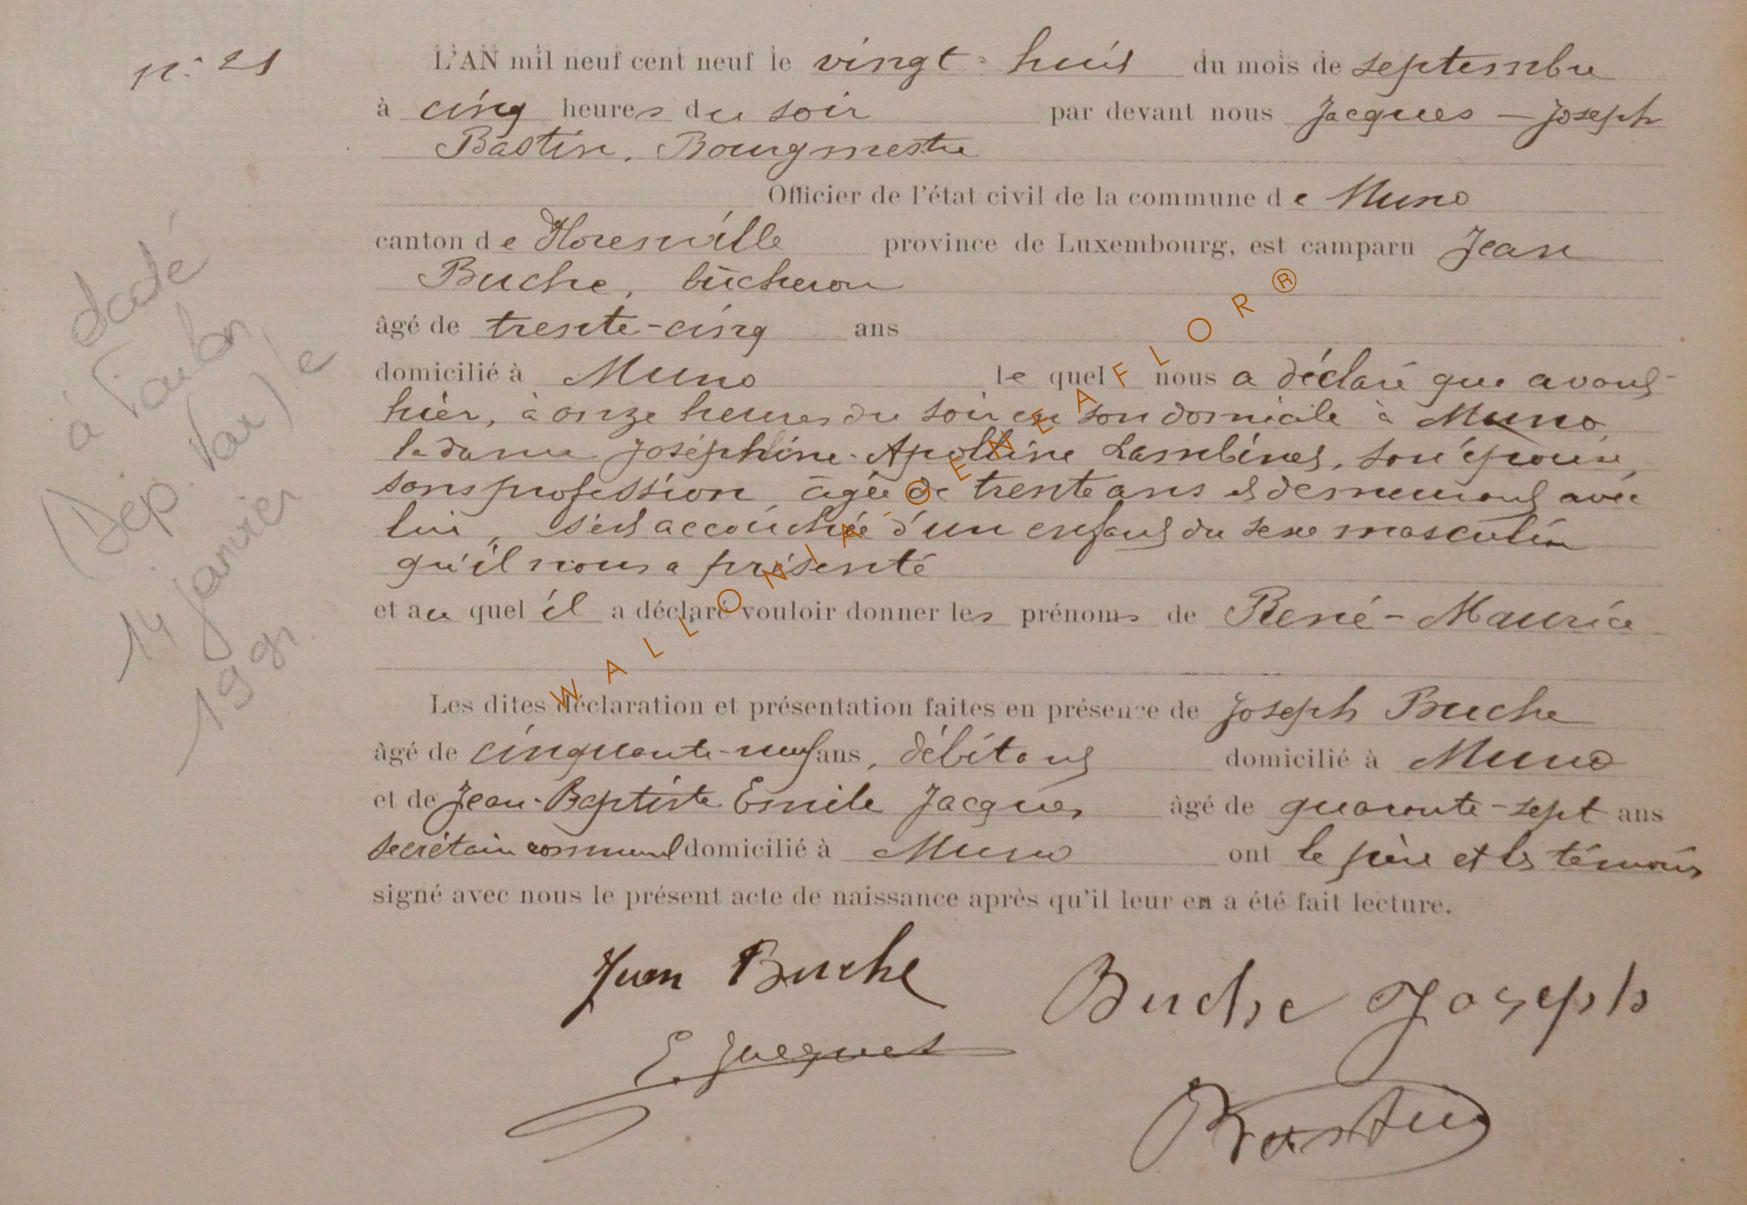 n° 21
L'AN mil neuf cent neuf le vingt-huit du mois de septembre
à cinq heures du soir par devant nous Jacques-Joseph
Bastin, Bourgmestre
Officier de l'état civil de la commune de Muno
canton de Florenville province de Luxembourg, est camparu Jean
Buche, bûcheron
âgé de trente-cinq ans
domicilié à Muno lequel nous a déclaré que avant-
hier, à onze heures du soir en son domicile à Muno,
la dame Joséphine-Apolline Lambinet, son épouse,
sans profession âgée de trente ans et demeurant avec
lui, s'est accouchée d'un enfant du sexe masculin
qu'il nous a présenté
et auquel il a déclaré vouloir donner les prénoms de René-Maurice
Les dites déclaration et présentation faites en présence de Joseph Buche
âgé de cinquante-neuf ans, débitant domicilié à Muno
et de Jean-Baptiste Emile Jacques âgé de quarante-sept ans
secrétaire communal domicilié à Muno ont le père et les témoins
signé avec nous le présent acte de naissance après qu'il leur en a été fait lecture.
Jean Buche
Buche Joseph
E. Jacques
Bastin
à Toulon
(Dép. Var) le
14 janvier
WALLONIA GENEAFLOR®